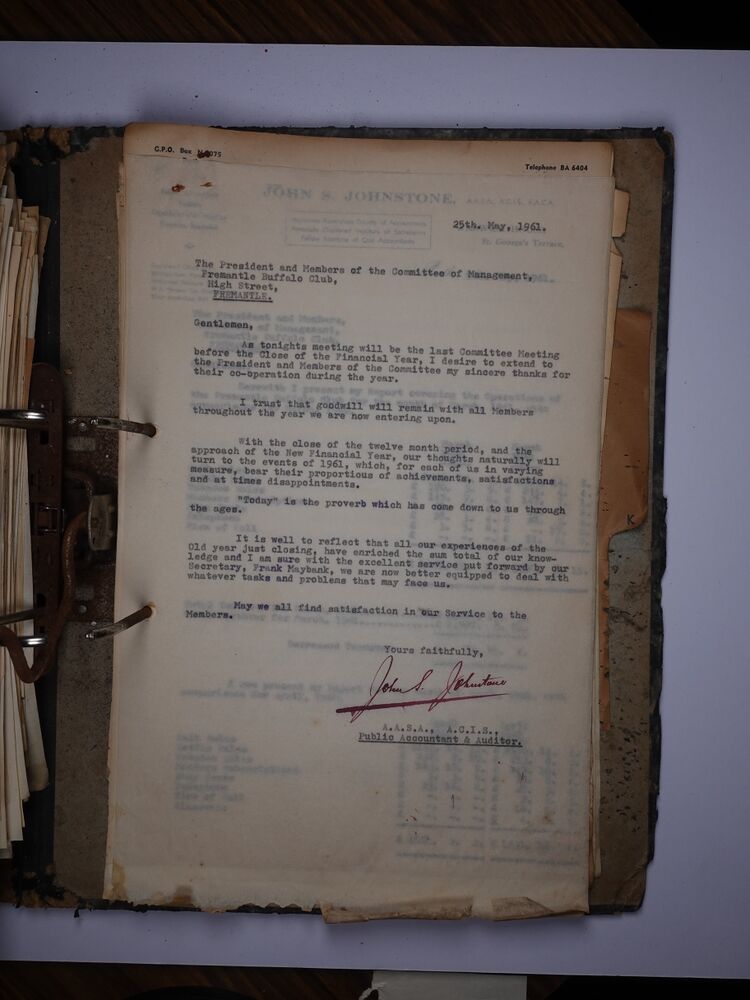 G.P.O. Box
Telephone BA 6404
JOHN S. JOHNSTONE,
25th. May, 1961.
St. George's Terrace,
The President and Members of the Committee of Management,
Fremantle Buffalo Club,
High Street,
FREMANTLE.
Gentlemen,
As tonights meeting will be the last Committee Meeting
before the Close of the Financial Year, I desire to extend to
the President and Members of the Committee my sincere thanks for
their co-operation during the year.
I trust that goodwill will remain with all Members
throughout the year we are now entering upon.
With the close of the twelve month period, and the
approach of the New Financial Year, our thoughts naturally will
turn to the events of 1961, which, for each of us in varying
measure, bear their proportions of achievements, satisfactions
and at times disappointments.
"Today" is the proverb which has come down to us through
the ages.
It is well to reflect that all our experiences of the
Old year just closing, have enriched the sum total of our know-
ledge and I am sure with the excellent service put forward by our
Secretary, Frank Maybank, we are now better equipped to deal with
whatever tasks and problems that may face us.
May we all find satisfaction in our Service to the
Members.
Yours faithfully,
John S. Johnstone
A.A.S.A., A.C.I.S.,
Public Accountant & Auditor.
K